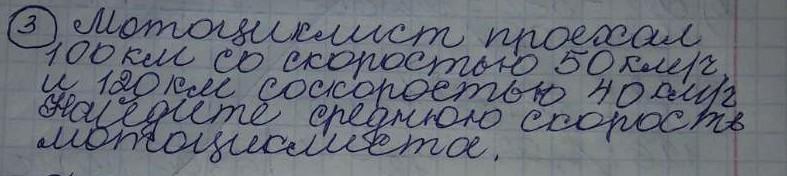 3 Мотоциклист проехал
100 км со скоростью 50 км/ч,
и 120 км соскоростью 40 км/ч
Найдите среднюю скорость
мотоциклиста.